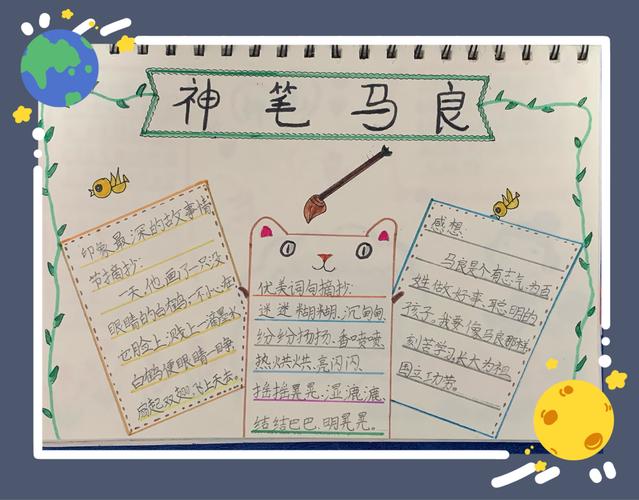 神笔马良
印象最深的故事情
节摘抄:
一天,他画了一只没
眼睛的白鹤,一不小心在
它脸上溅上一滴墨水,
白鹤便眼睛一睁
扇起双翅飞上天去。
优美词句摘抄:
迷迷糊糊、沉甸甸
纷纷扬扬、香喷喷
热烘烘、亮闪闪、
摇摇晃晃、湿漉漉
结结巴巴、明晃晃。
感想:
马良是个有志气,为百
姓做好事、聪明的
孩子。我要像马良那样
刻苦学习,长大为祖
国立功劳。